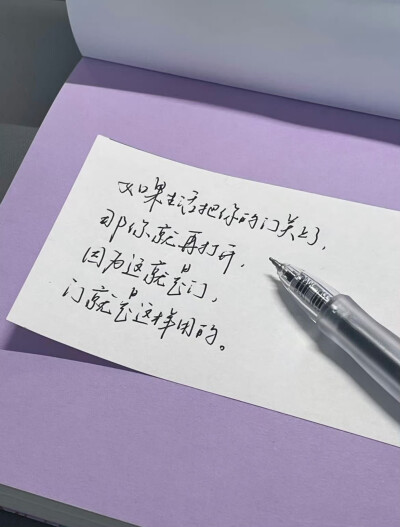 如果生活把你的门关上了,
那你就再打开,
因为这就是门,
门就是这样用的。